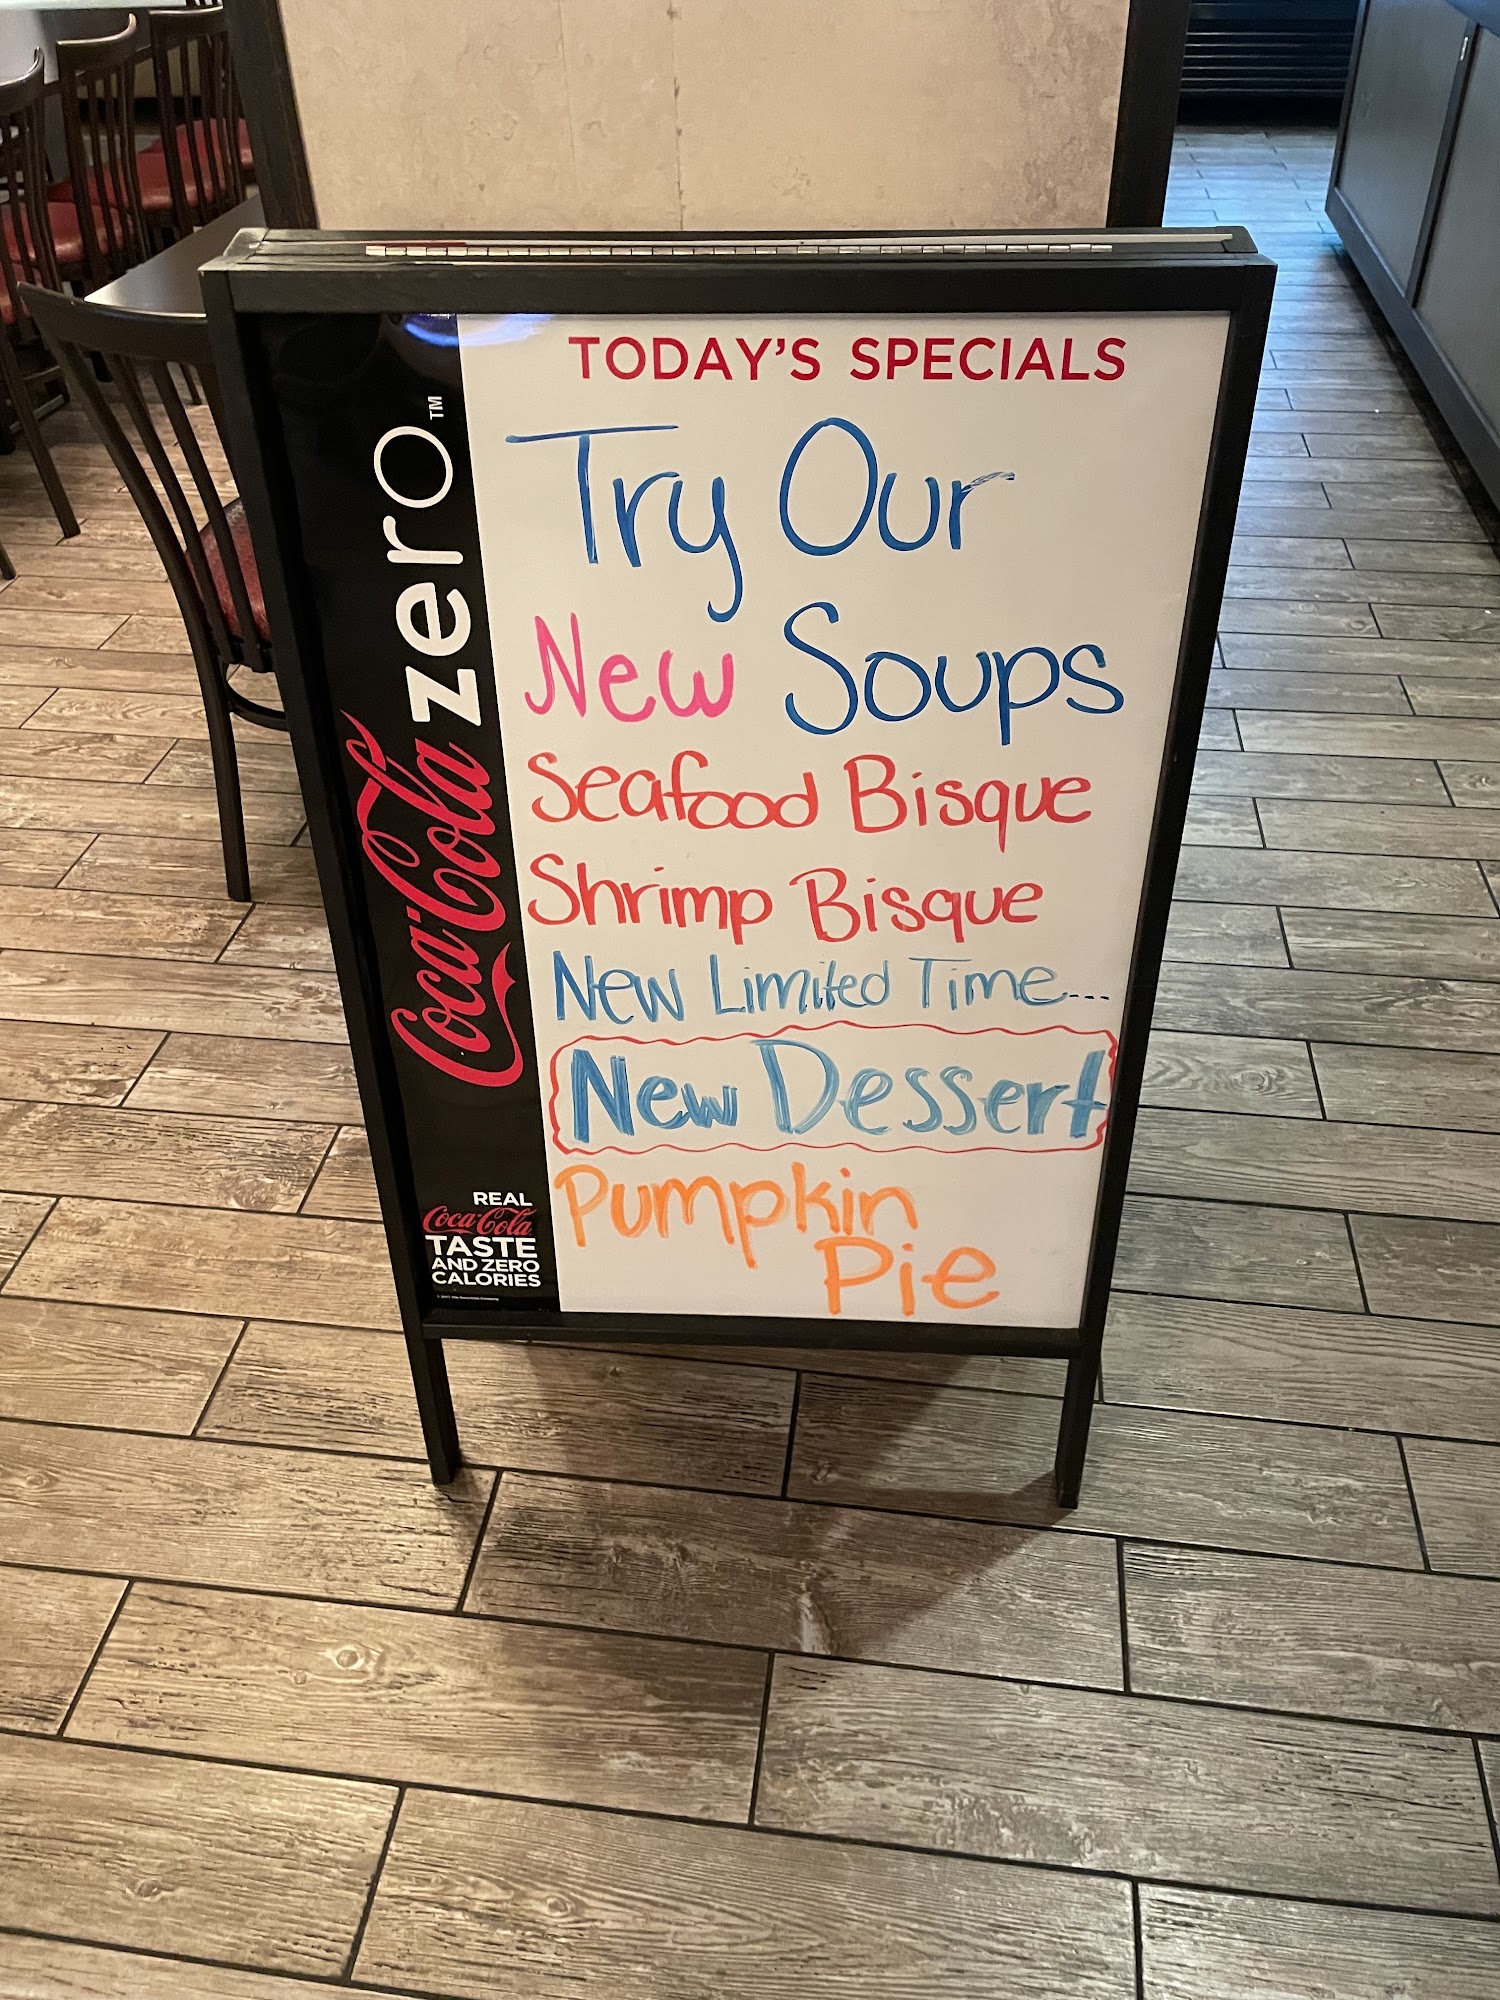 TODAY'S SPECIALS
Try Our
New Soups
Seafood Bisque
Shrimp Bisque
New Limited Time...
New Dessert
Pumpkin
Pie
Coca-Cola zero™
REAL
Coca-Cola
TASTE
AND ZERO
CALORIES